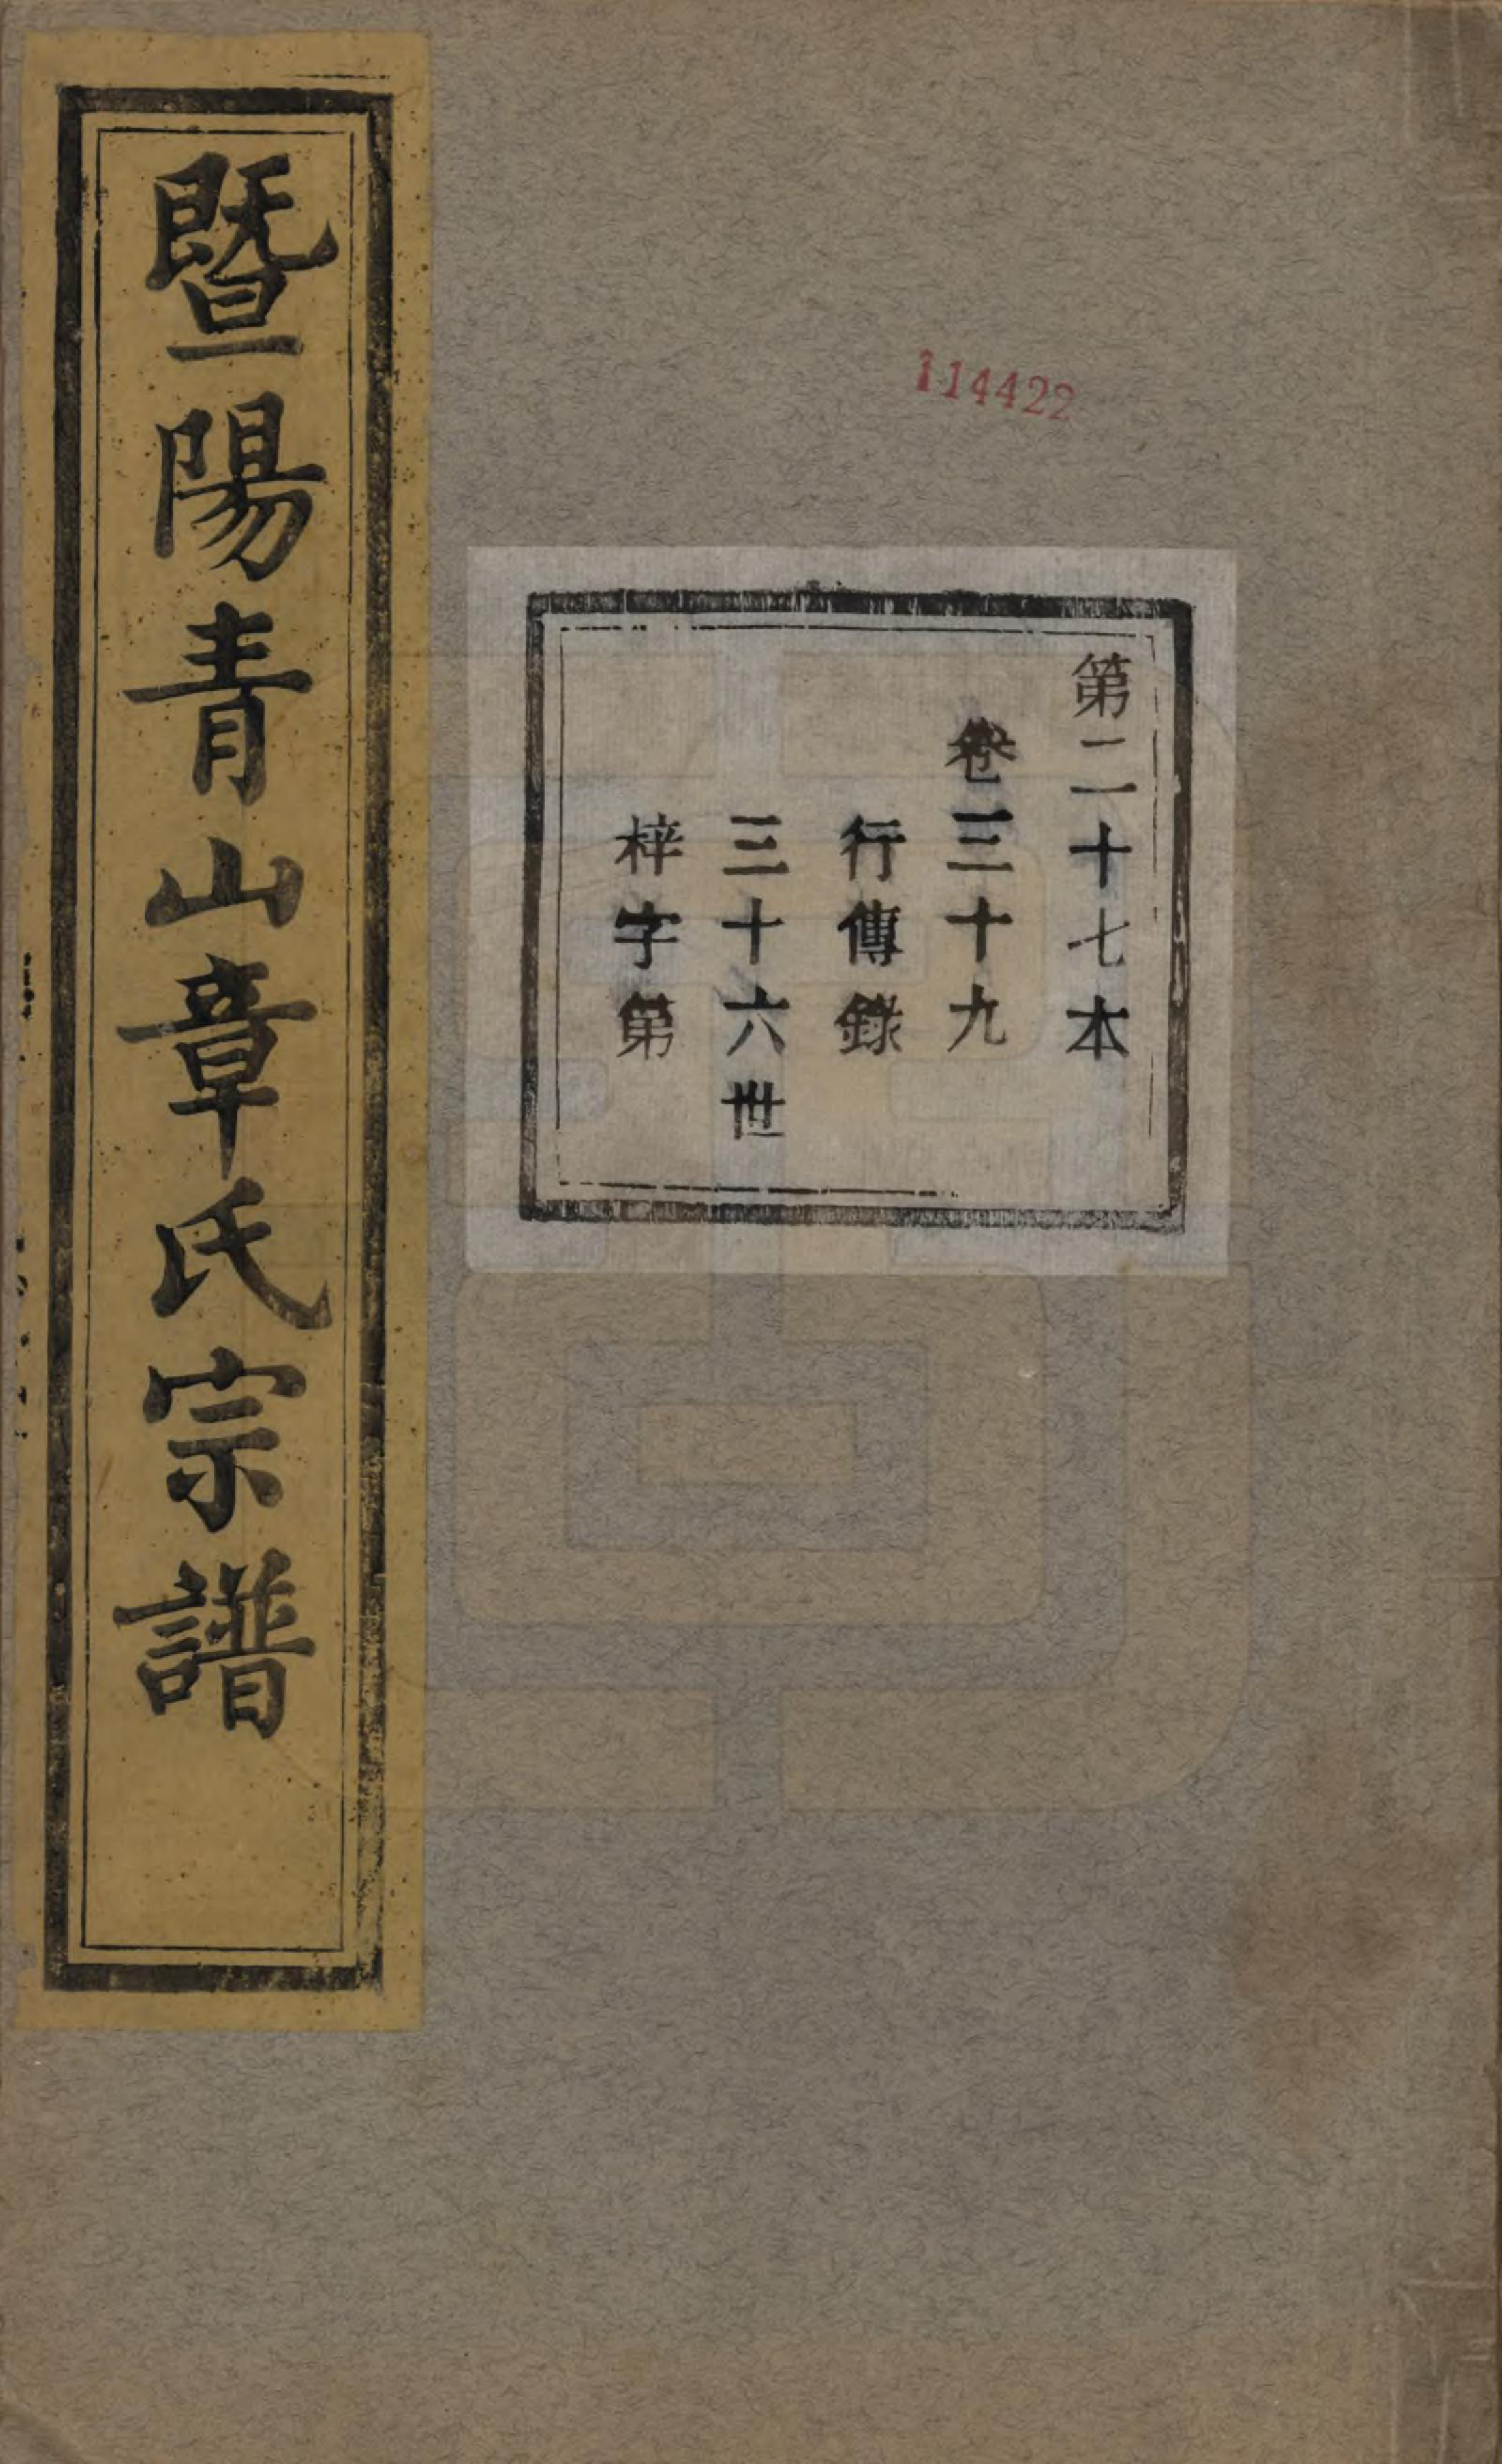 暨陽青山章氏宗譜
114422
第二十七本
卷三十九
行傳錄
三十六世
梓字第